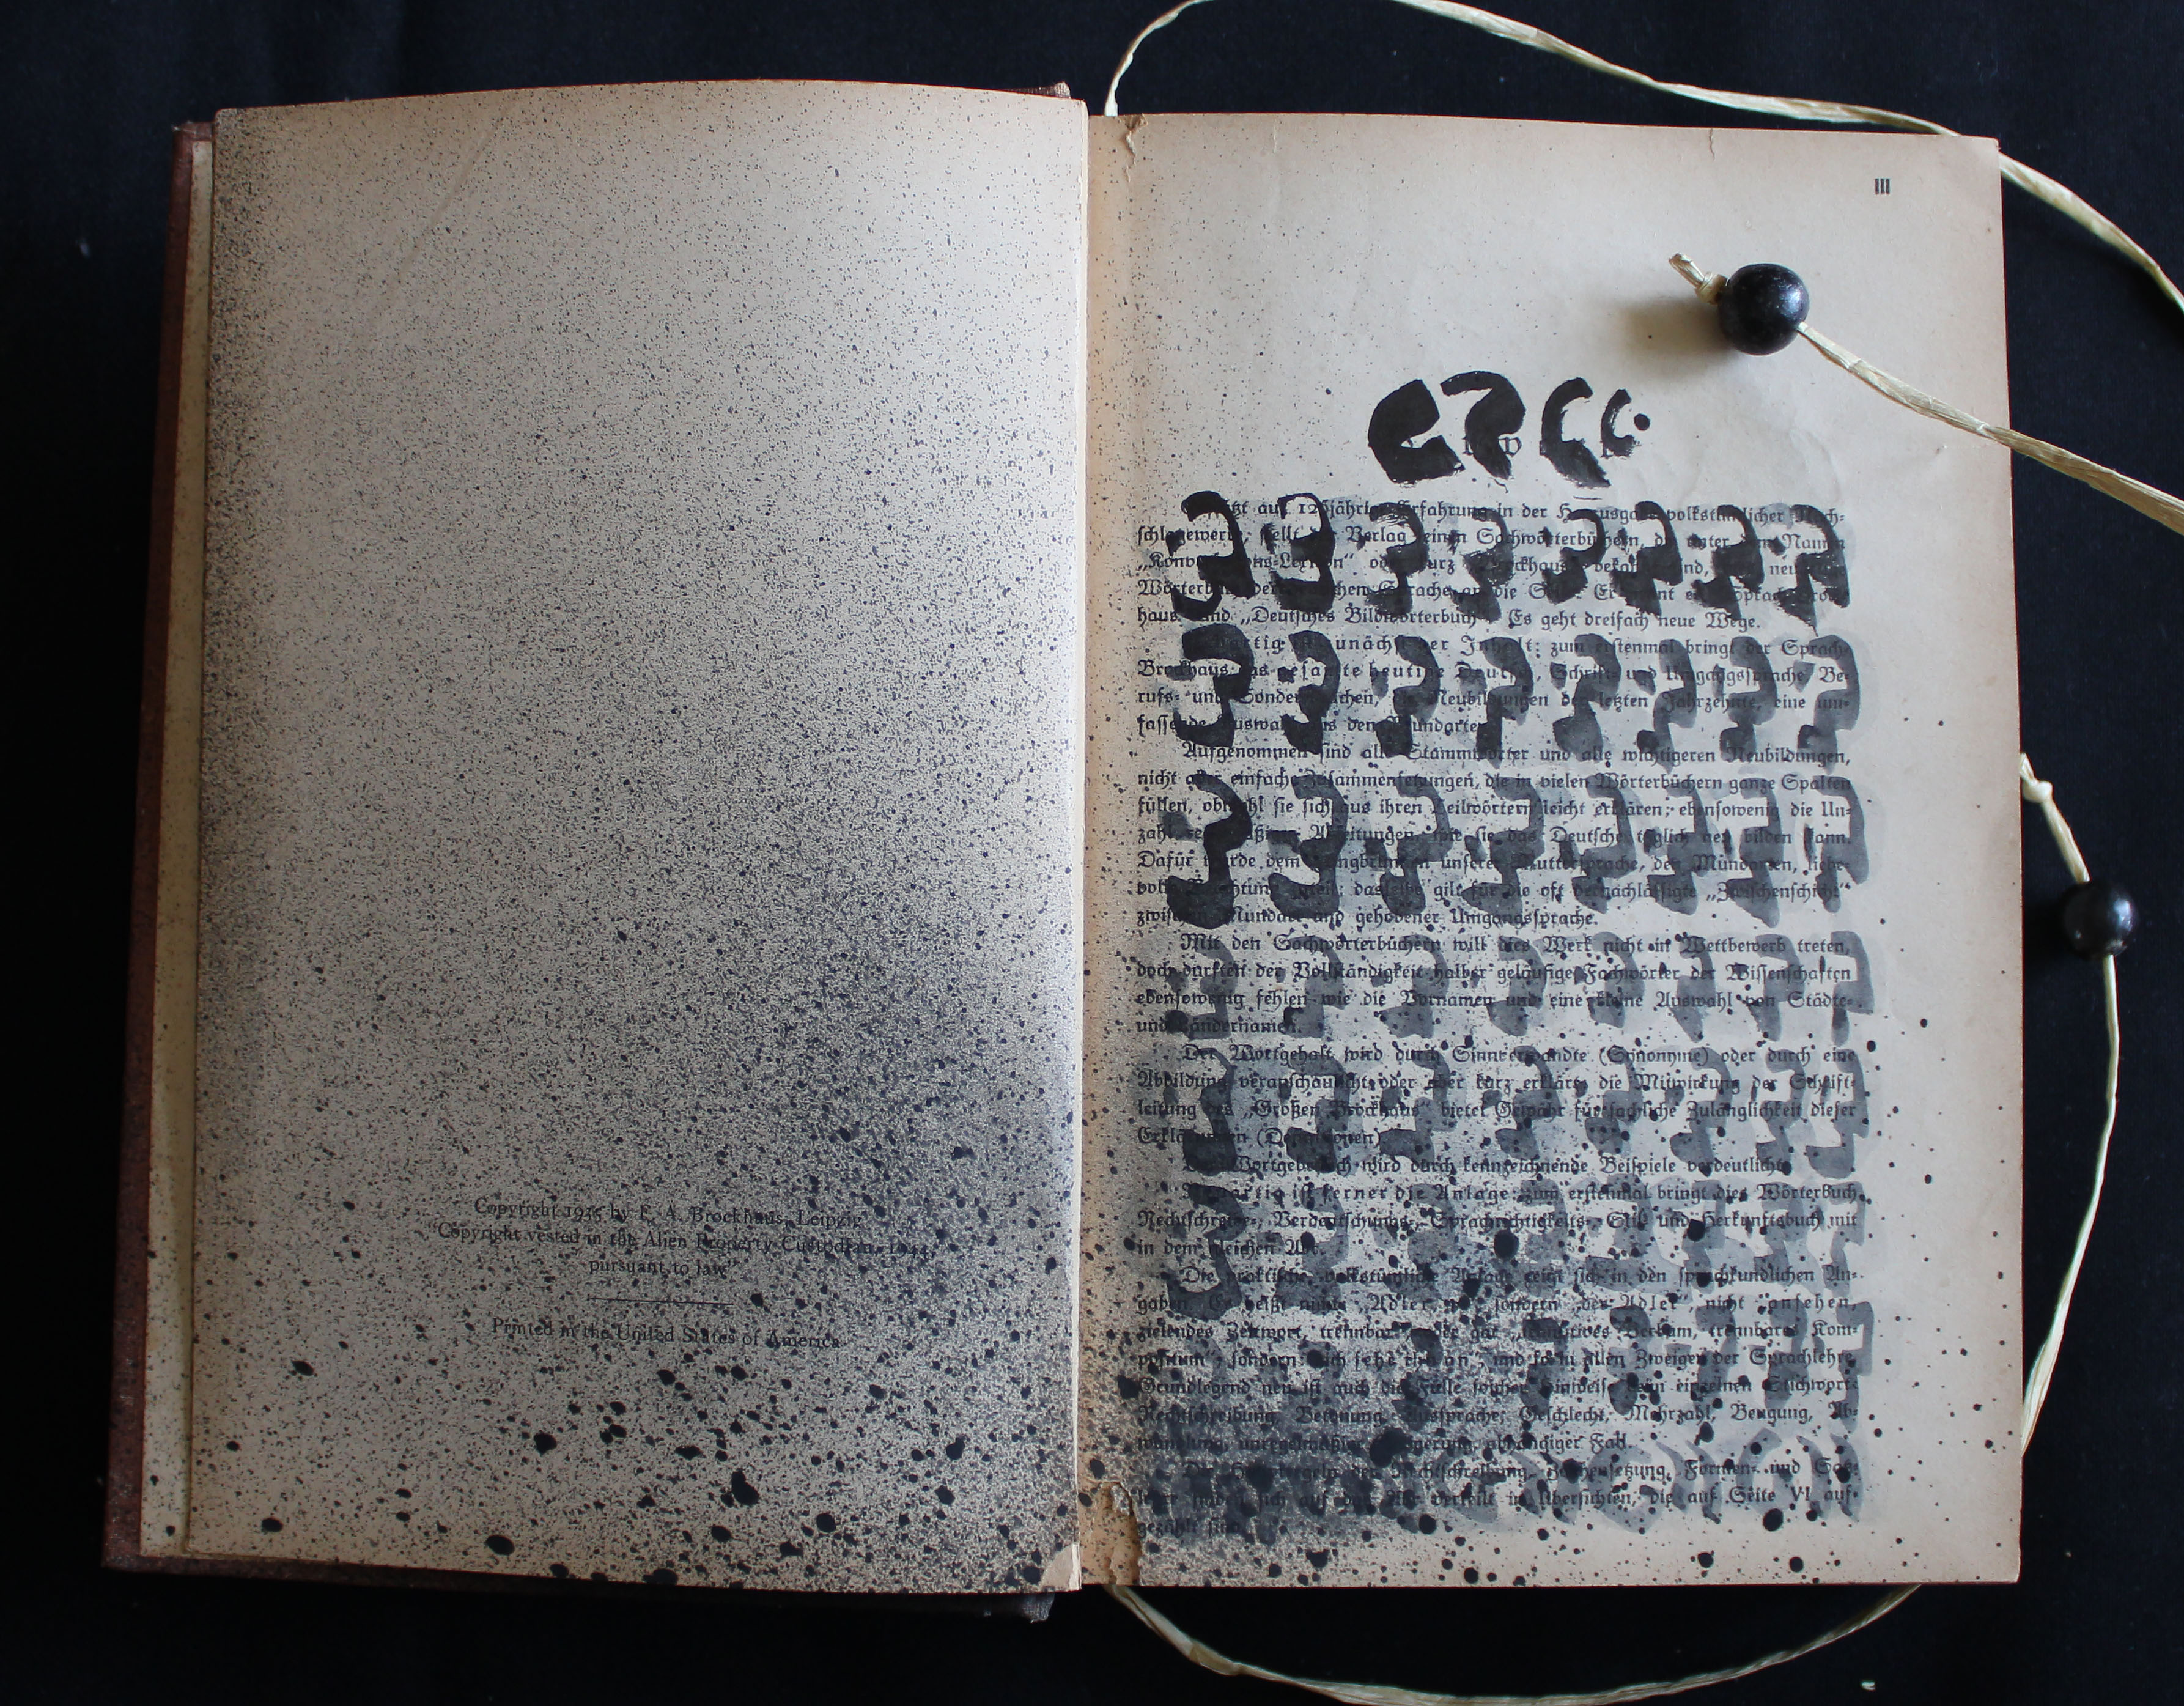 Copyright 1935 by F. A. Brockhaus, Leipzig
"Copyright vested in the Alien Property Custodian, 1944,
pursuant to law"
Printed in the United States of America
III
in der volkstümlicher
stellt der Verlag seinen Sachwörterbüchern, die unter dem Namen
Wörterbuch der Sprache an die
haus" und „Deutsches Bildwörterbuch“. Es geht dreifach neue Wege.
zunächst der Inhalt: zum erstenmal bringt der Sprach-
Brockhaus das gesamte heutige Deutsch, Schrift- und Umgangssprache, Be-
rufs- und Sondersprachen, die Neubildungen der letzten Jahrzehnte, eine um-
fassende Auswahl aus den Mundarten.
Aufgenommen sind alle Stammwörter und alle wichtigeren Neubildungen,
nicht aber einfache Zusammensetzungen, die in vielen Wörterbüchern ganze Spalten
füllen, obwohl sie sich aus ihren Teilwörtern leicht erklären; ebensowenig die Un-
zahl Ableitungen, wie sie das Deutsche täglich neu bilden kann.
Dafür wurde dem Jungbrunnen unserer Muttersprache, den Mundarten, liebe-
volle Beachtung zuteil; dasselbe gilt für die oft vernachlässigte „Zwischenschicht“
zwischen Mundart und gehobener Umgangssprache.
Mit den Sachwörterbüchern will dies Werk nicht in Wettbewerb treten,
doch durften der Vollständigkeit halber geläufige Fachwörter der Wissenschaften
ebensowenig fehlen wie die Vornamen und eine kleine Auswahl von Städte-
und Ländernamen.
Der Wortgehalt wird durch Sinnverwandte (Synonyme) oder durch eine
Abbildung veranschaulicht oder aber kurz erklärt; die Mitwirkung der Schrift-
leitung des „Großen Brockhaus“ bietet Gewähr für sachliche Zulänglichkeit dieser
Erklärungen (Definitionen).
Der Wortgebrauch wird durch kennzeichnende Beispiele verdeutlicht.
Neuartig ist ferner die Anlage: zum erstenmal bringt dies Wörterbuch
Rechtschreib-, Verdeutschungs-, Sprachrichtigkeits-, Stil- und Herkunftsbuch mit
in dem gleichen Abc.
Die praktische, volkstümliche Anlage zeigt sich in den sprachkundlichen An-
gaben. Es heißt nicht „Adler, sondern „der Adler“ nicht „ansehen,
zielendes Zeitwort, trennbar“ oder gar Verbum, trennbares Kom-
positum“, sondern: „ich sehe ihn an“, und so in allen Zweigen der Sprachlehre.
Grundlegend neu ist auch die Fülle solcher Hinweise beim einzelnen Stichwort:
Rechtschreibung, Betonung, Aussprache, Geschlecht, Mehrzahl, Beugung, Ab-
wandlung, unregelmäßige Steigerung, abhängiger Fall.
Die Hauptregeln der Rechtschreibung, Zeichensetzung, Formen- und Satz-
lehre finden sich auf das Abc verteilt in Übersichten, die auf Seite VI auf-
gezählt sind.